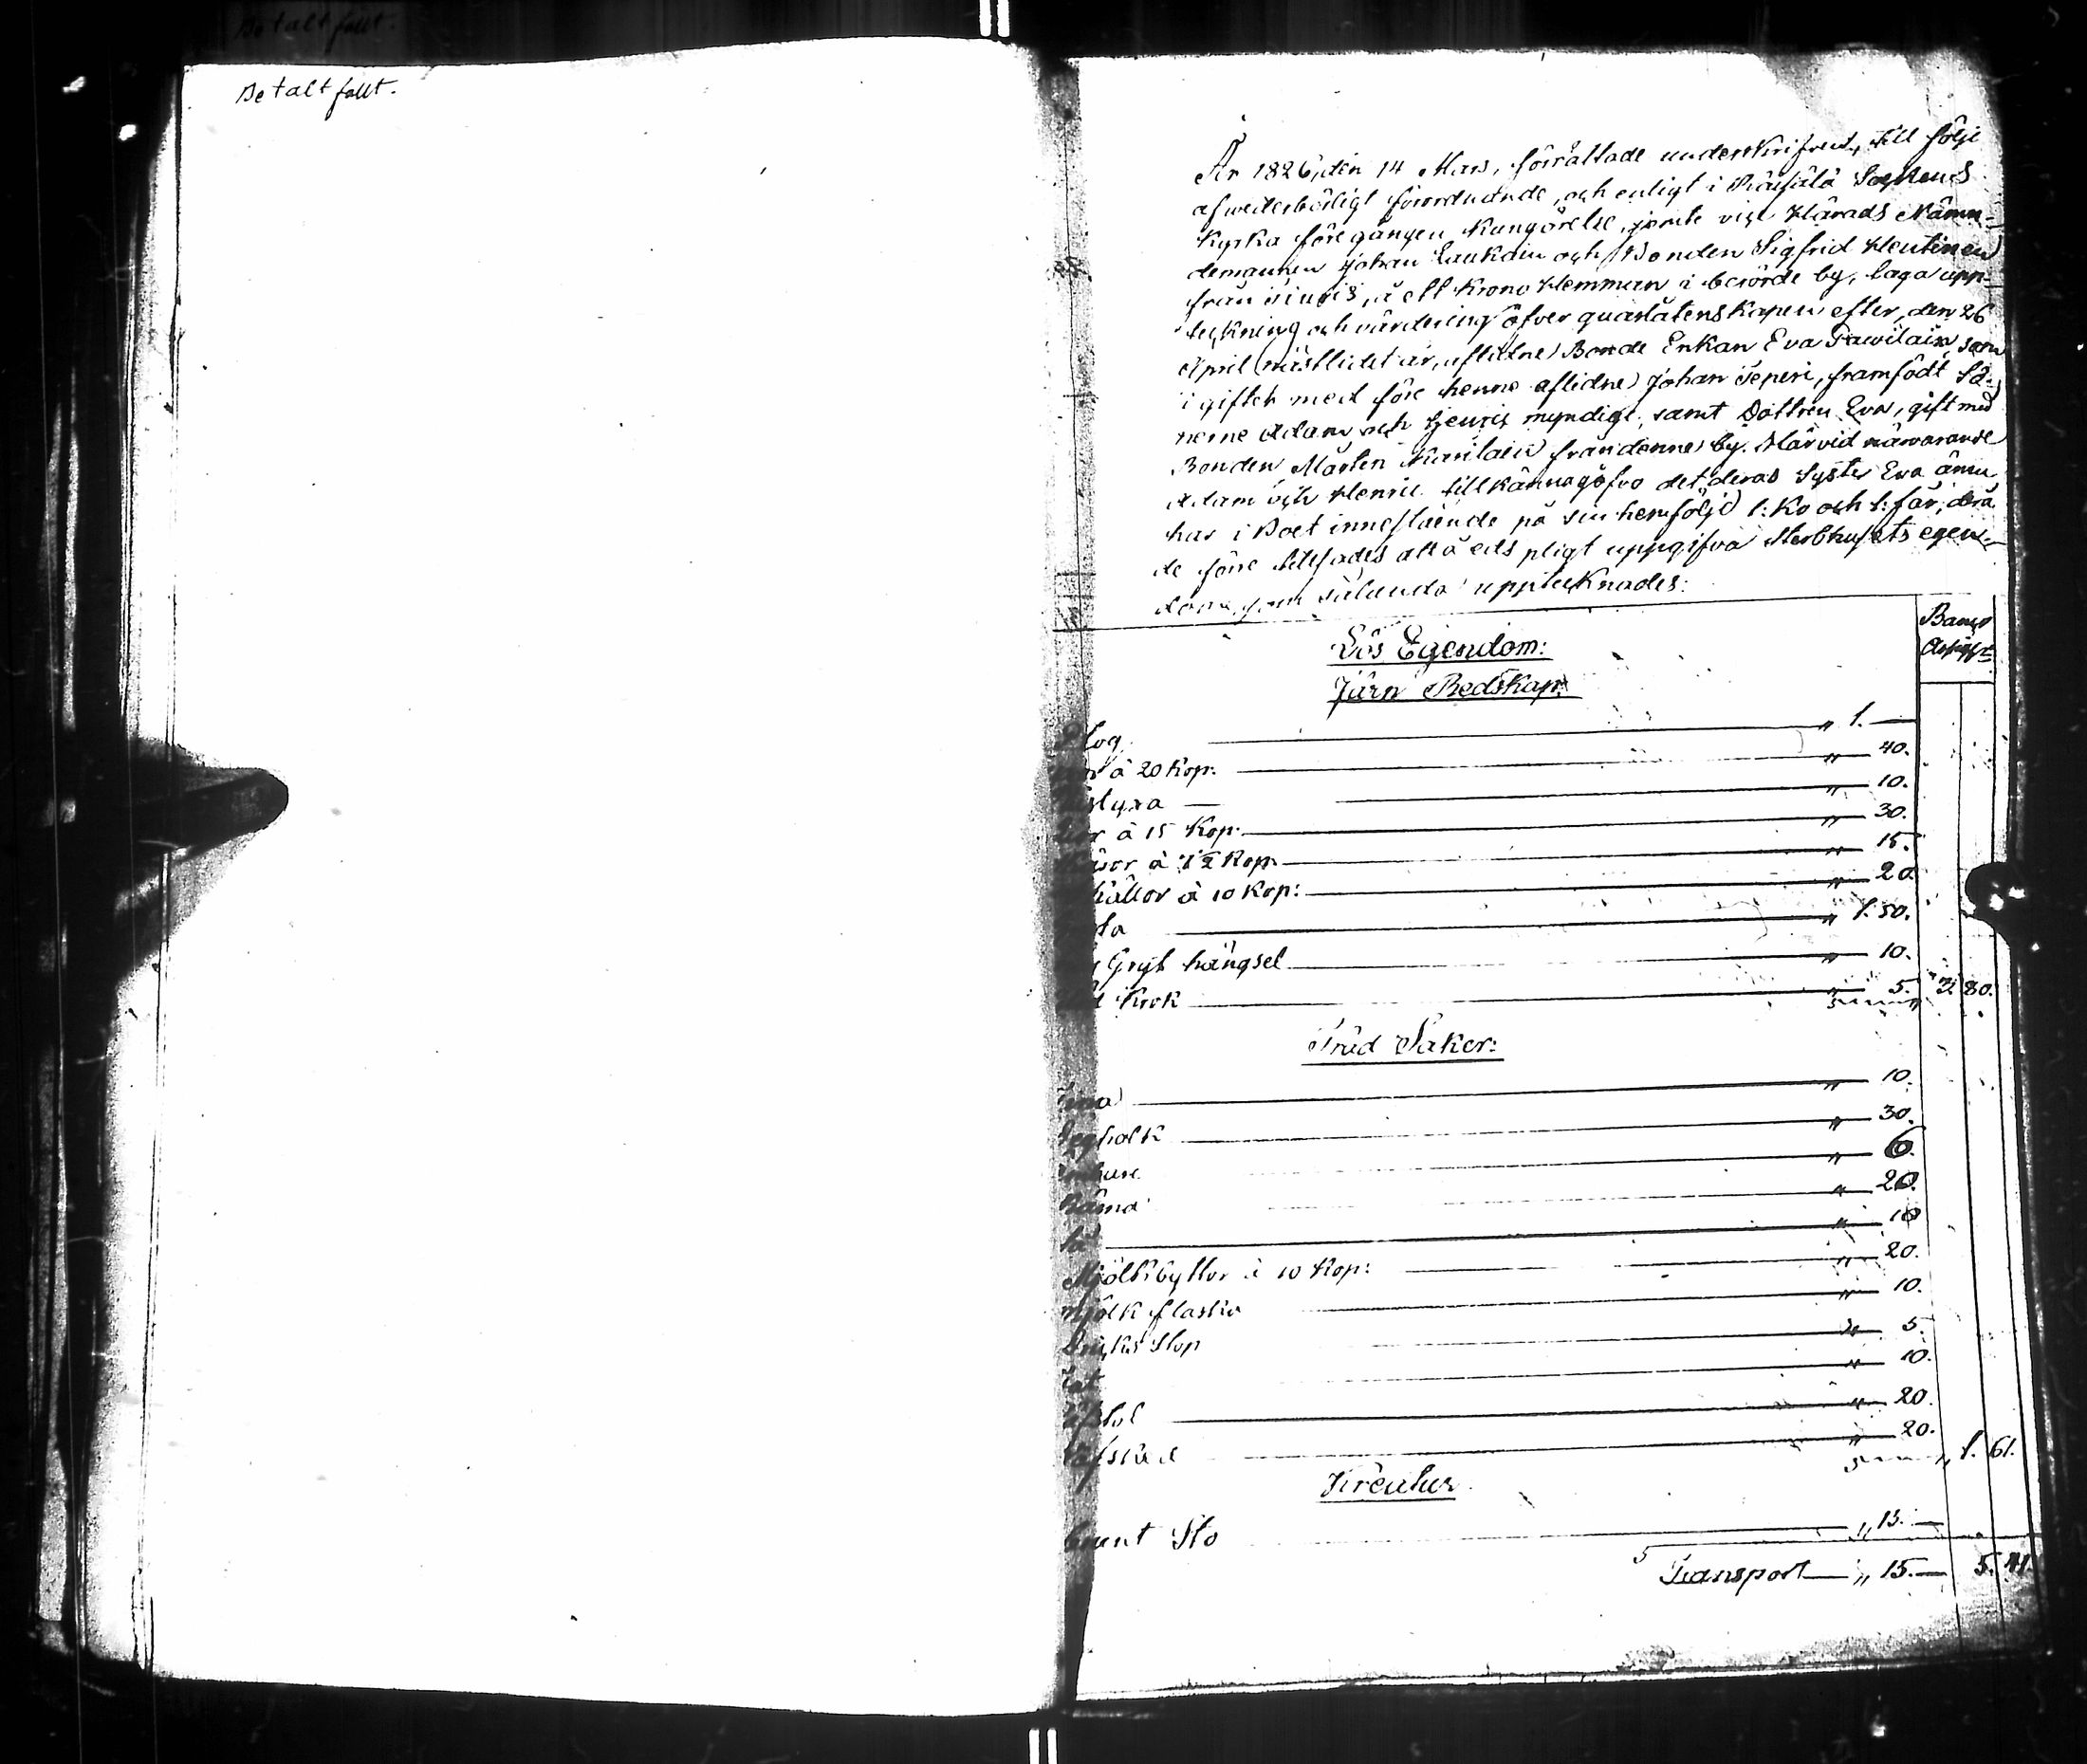 Betalt follt.
År 1826, den 14 Mars, förrättade underskrifven, till följe
af wederbörligt förordnande, och enligt i Räisälä Sockens
Kyrka föregången kungörelse, jemte vice Härads Nämn-
demannen Johan Laukain och Bonden Sigfrid Hentinen
från , å ett Krono Hemman i berörde by, laga upp-
teckning och värdering öfver quarlåtenskapen efter, den 26
April nästledit år, aflidne Bonde Enkan Eva Pawilain, som
i giftet med före henne aflidne Johan Teperi, framfödt Sö-
nerne Adam och Henric myndige, samt Dottren Eva, gift med
Bonden Mårten från denne by. Härvid närvarande
Adam och Henric tillkännagåfvo det deras Syster Eva ännu
har i Boet innestående på sin hemfölje 1: Ko och 1: får, derå
de före tillsades att å eds pligt uppgifva Sterbhusets egen-
dom, som sålunda upptecknades:
Banco
Assign:
Lös Egendom:
Järn Redskap:
Plog " 1. —
à 20 Kop: " 40.
yxa " 10.
à 15 Kop: " 30.
à 7½ Kop: " 15.
hällor à 10 Kop: " 20.
" 1. 50.
Gryt hängsel " 10.
Krok " 5. " 3. 80.
Träd Saker:
" 10.
" 30.
" 6.
" 20.
" 10
Mjölkbyttor à 10 Kop: " 20.
mjölk flaska " 10.
Stop " 5.
" 10.
" 20.
" 20. " 1. 61.
Kreatur
brunt Sto " 15. —
Transport " 15. — 5. 41.